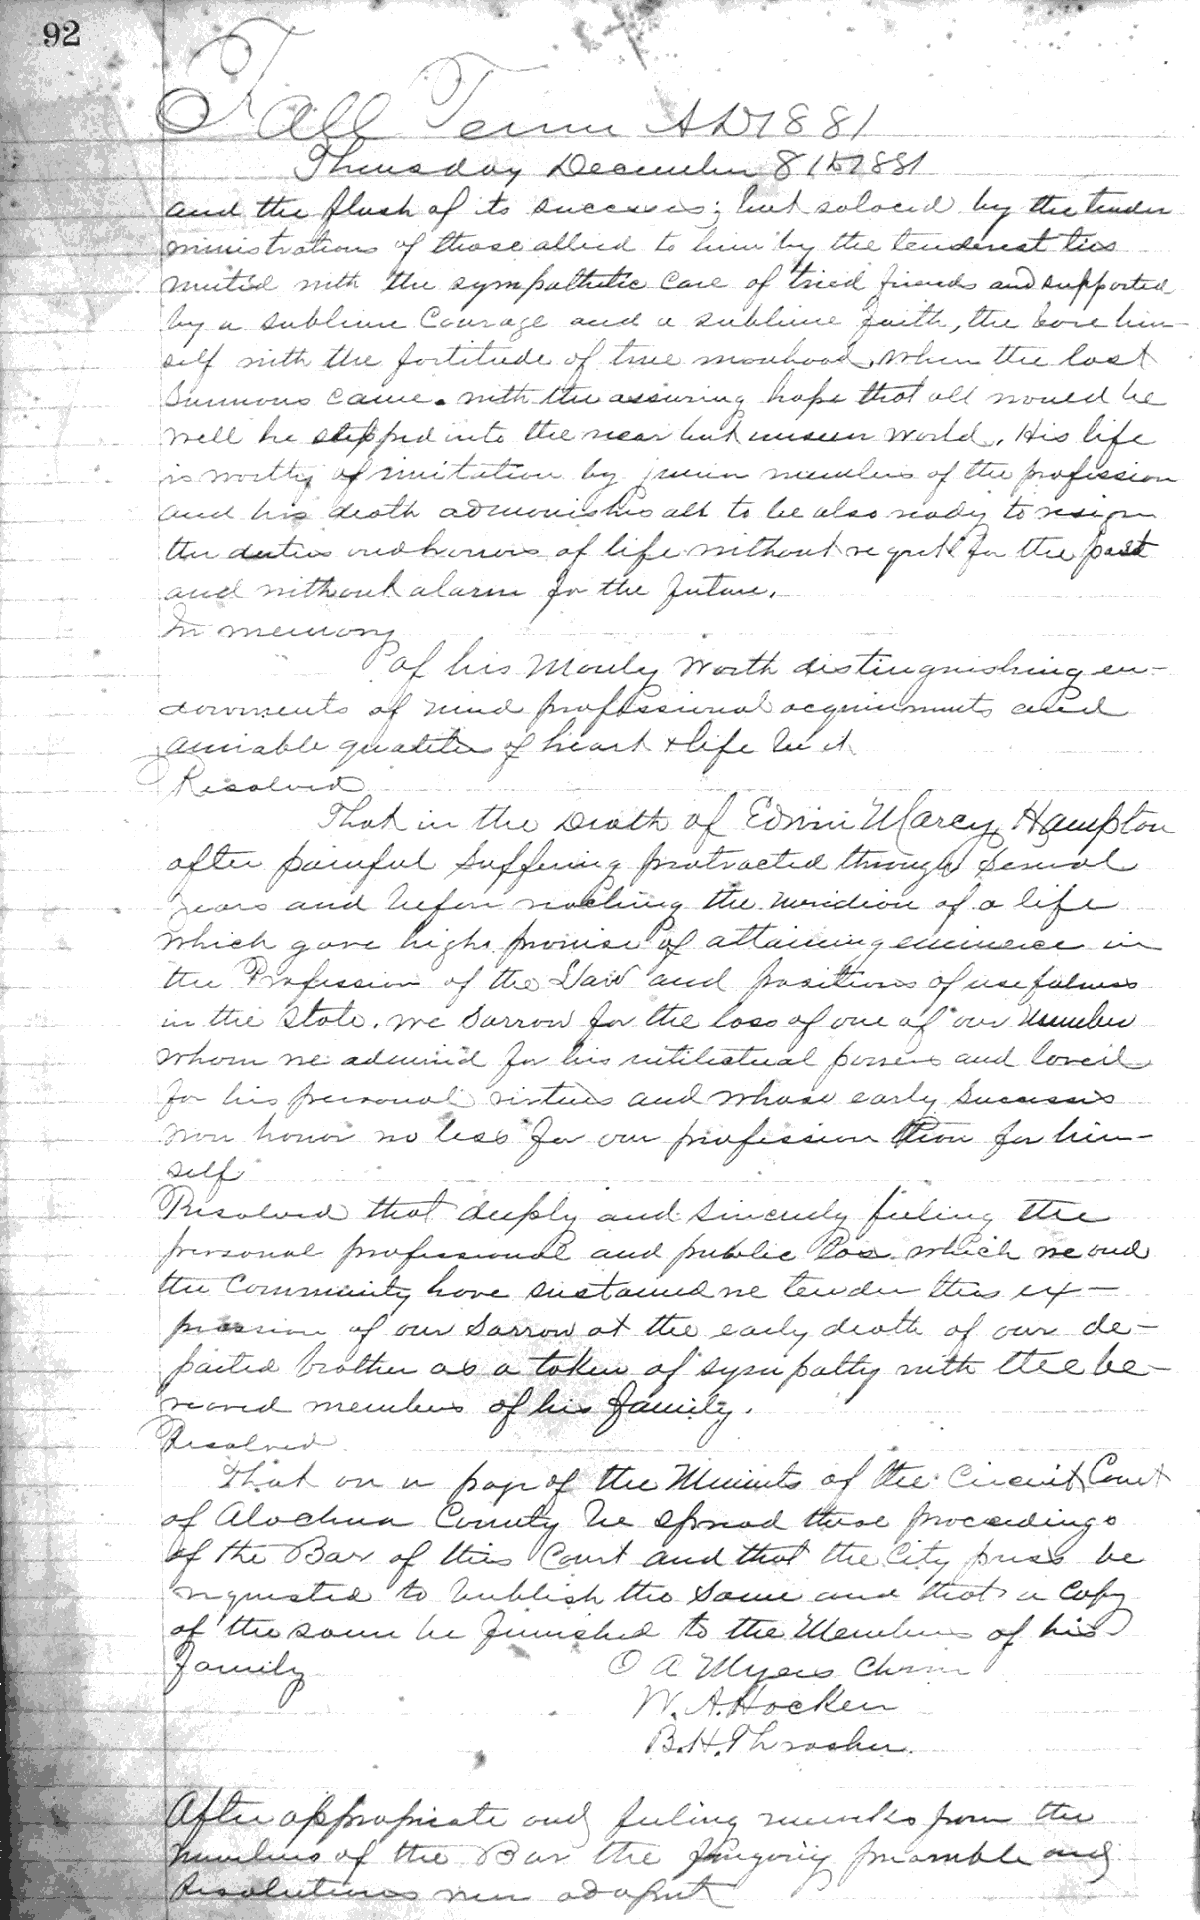 92
Fall Term A D 1881
Thursday December 8th 1881
and the flush of its success; but solaced by the tender
ministrations of those allied to him by the tenderest ties
united with the sympathetic care of tried friends and supported
by a sublime Courage and a sublime faith, the bore him-
self with the fortitude of true manhood, when the last
Summons came. with the assuring hope that all would be
well he stepped into the near but unseen world. His life
is worthy of imitation by junior members of the profession
and his death admonishes all to be also ready to resign
the duties and honors of life without regret for the past
and without alarm for the future.
In memory
of his Manly Worth distinguishing en-
dowments of mind professional acquirements and
amiable qualities of heart & life be it
Resolved
That in the Death of Edwin Marcy Hampton
after painful Suffering protracted through Several
years and before reaching the meridian of a life
which gave high promise of attaining eminence in
the Profession of the Law and positions of usefulness
in the State. we Sorrow for the loss of one of our Number
whom we admired for his intellectual powers and loved
for his personal virtues and whose early Successes
won honor no less for our profession than for him-
self
Resolved that deeply and sincerely feeling the
personal professional and public loss which we and
the Community have sustained we tender this ex-
pression of our Sorrow at the early death of our de-
parted brother as a token of sympathy with the be-
reaved members of his family.
Resolved
That on a page of the Minutes of the Circuit Court
of Alachua County be spread these proceedings
of the Bar of this Court and that the City press be
requested to publish the Same and that a Copy
of the same be furnished to the Members of his
family
O A Myers Chrm
W. A. Hocker
B. H. Thrasher.
After appropriate and feeling remarks from the
Members of the Bar the foregoing preamble and
Resolutions were adopted